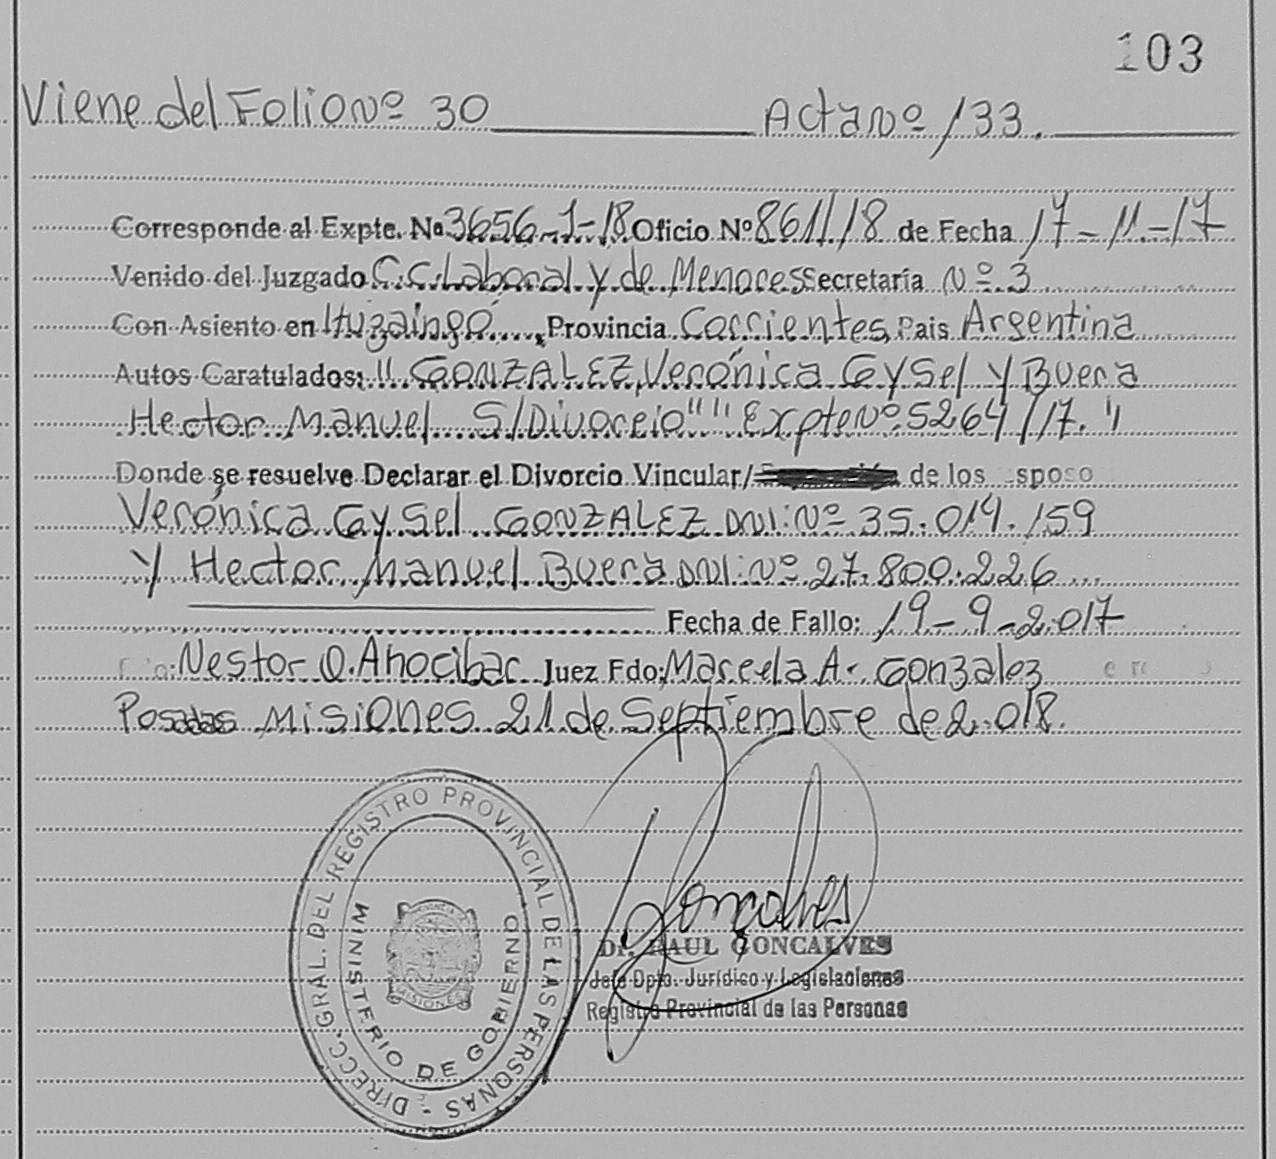 103
Viene del Folio Nº 30 Acta Nº 133.
Corresponde al Expte. Nº 3656-1-18 Oficio Nº 861/18 de Fecha 17-11-17
Venido del Juzgado C.C. Laboral y de Menores Secretaría Nº 3
Con Asiento en Ituzaingó, Provincia Corrientes, Pais Argentina
Autos Caratulados: "GONZALEZ, Verónica Gysel y Buera
Hector Manuel S/Divorcio" "Expte Nº 5264/17."
Donde se resuelve Declarar el Divorcio Vincular/ de los sposo
Verónica Gysel GONZALEZ DNI: Nº 35.014.159
y Hector Manuel Buera DNI: Nº 27.800.226
Fecha de Fallo: 19-9-2.017
Nestor O. Anocibar Juez Fdo: Marcela A. Gonzalez
Posadas Misiones 21 de Septiembre de 2.018.
DIRECC. GRAL. DEL REGISTRO PROVINCIAL DE LAS PERSONAS -
MINISTERIO DE GOBIERNO
MISIONES
Goncalves
Dr. RAUL GONCALVES
Jefe Dpto. Jurídico y Legislaciones
Registro Provincial de las Personas